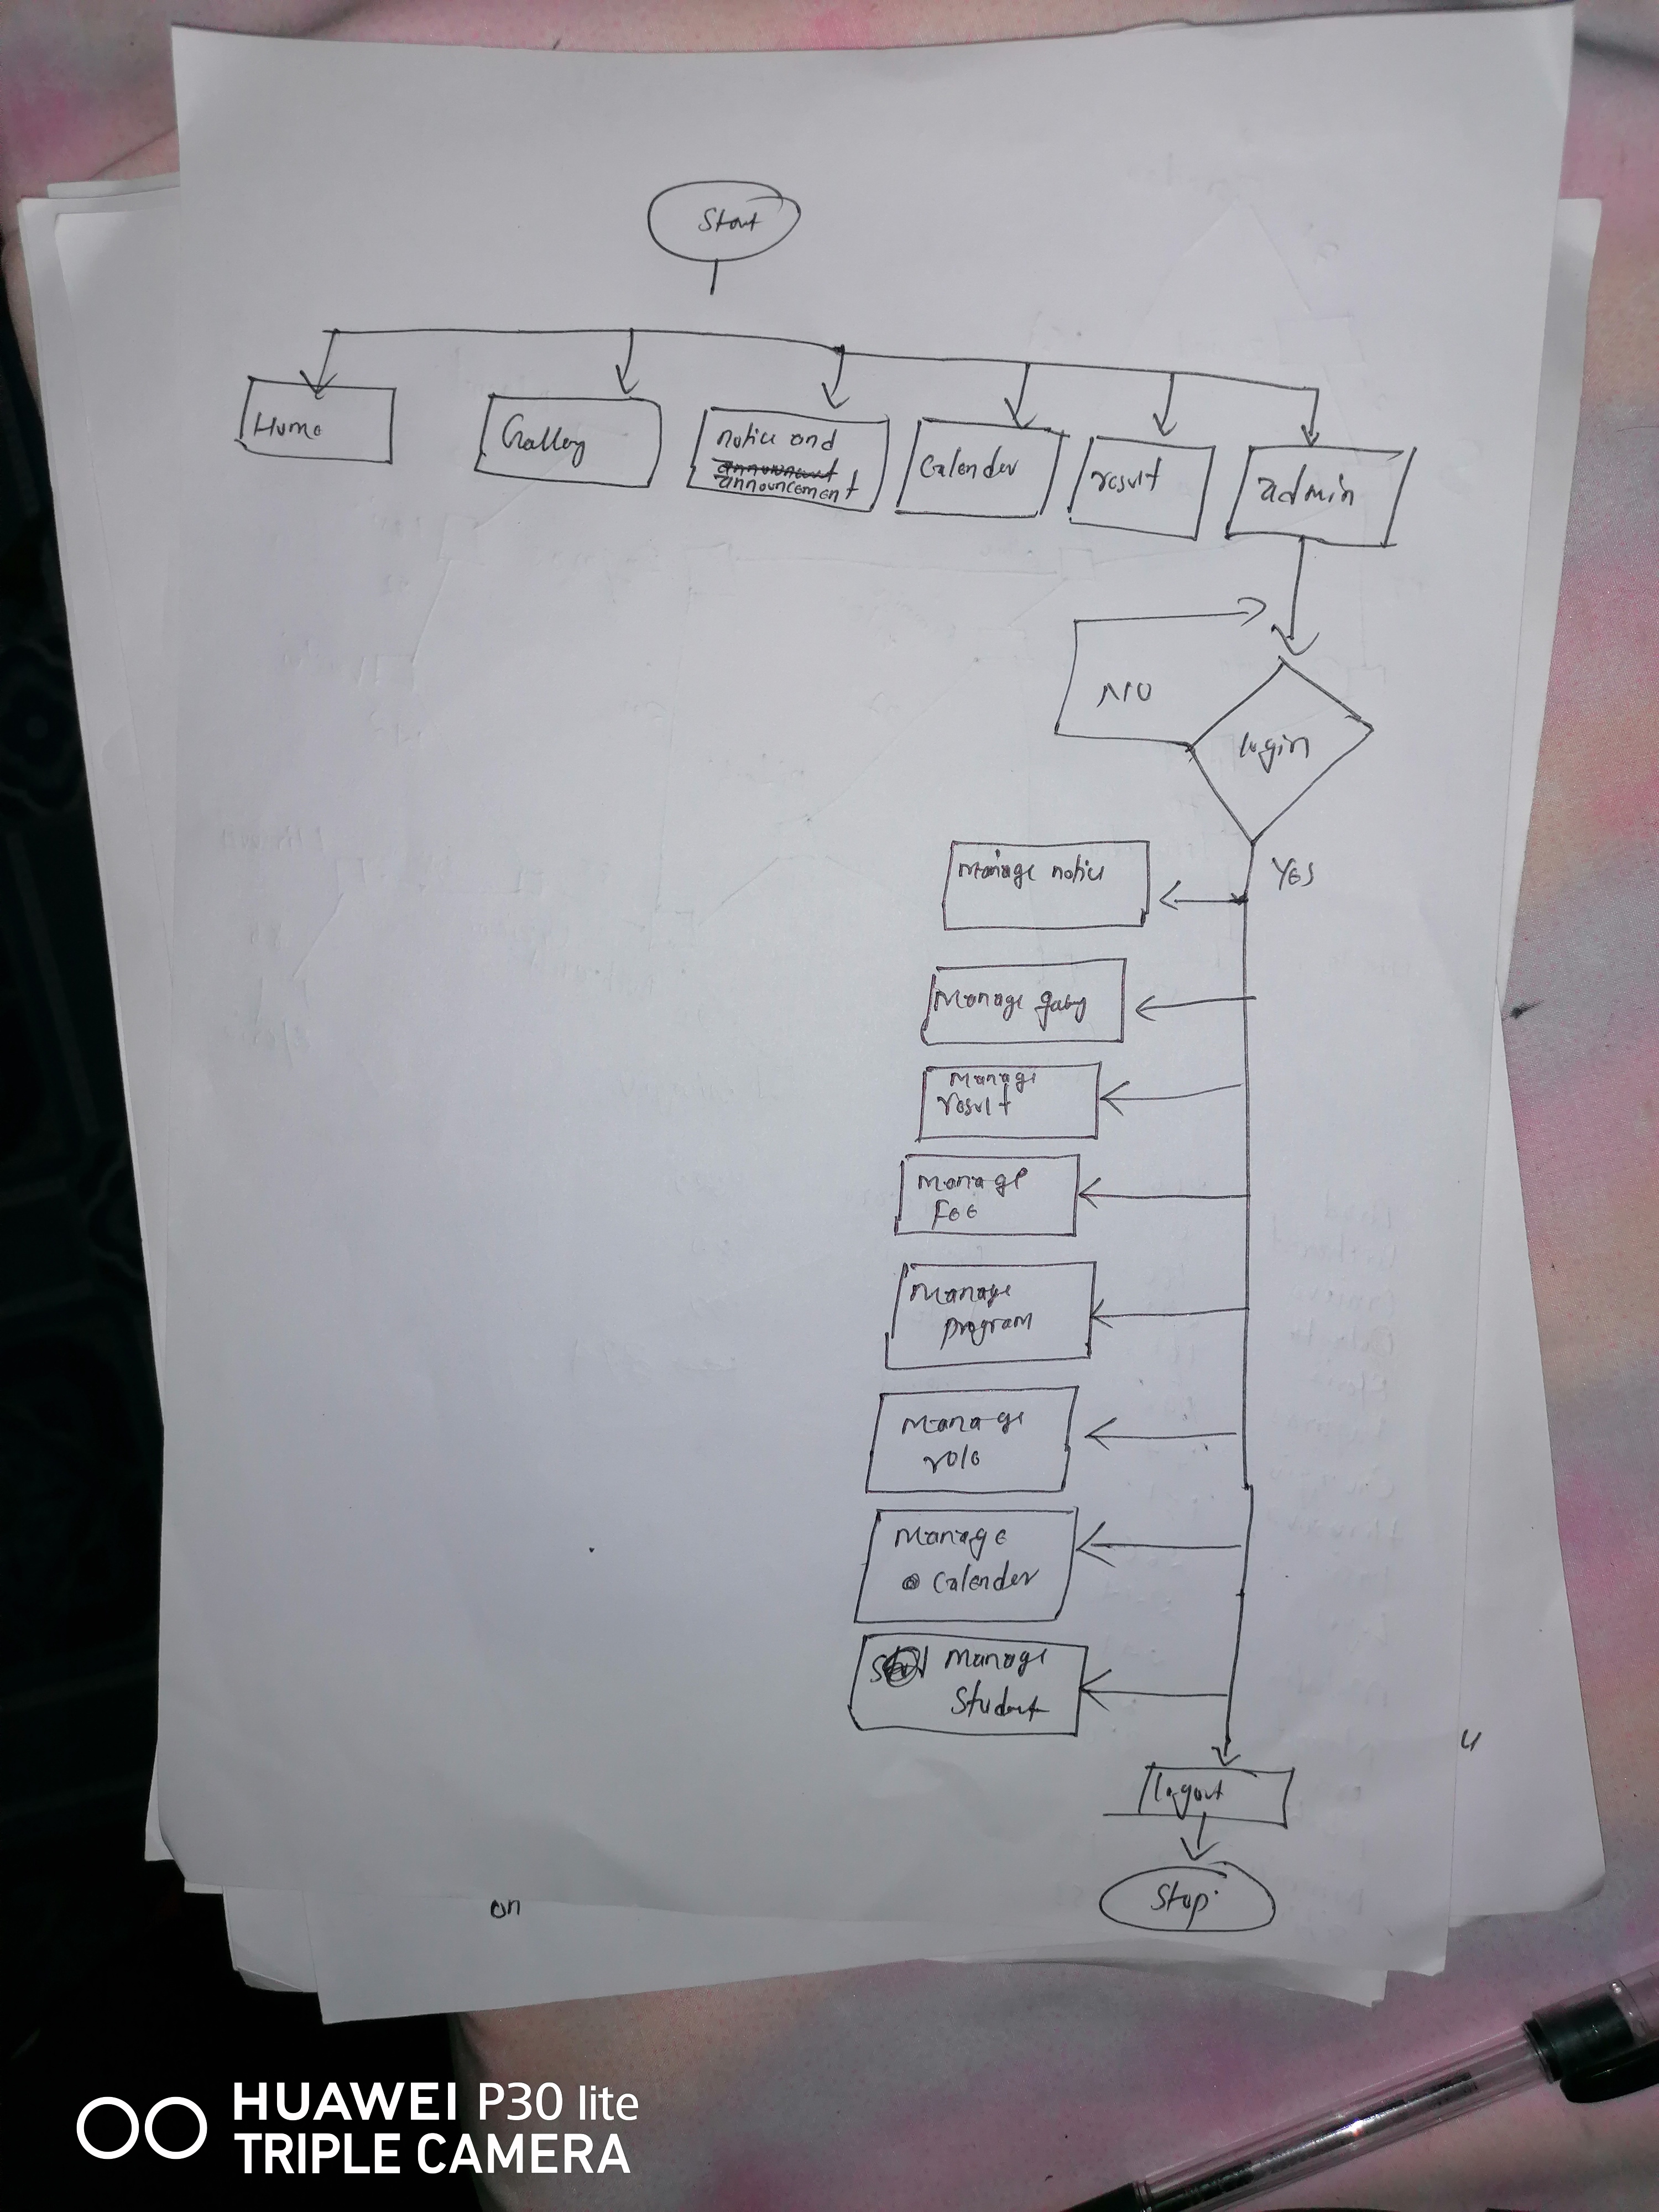 Start
Home
Gallery
notice and
announcement
Calender
result
admin
NO
login
YES
Manage notice
Manage
Manage
result
Manage
Fee
Manage
program
Manage
role
Manage
Calender
Manage
Student
logout
Stop
u
on
HUAWEI P30 lite
TRIPLE CAMERA